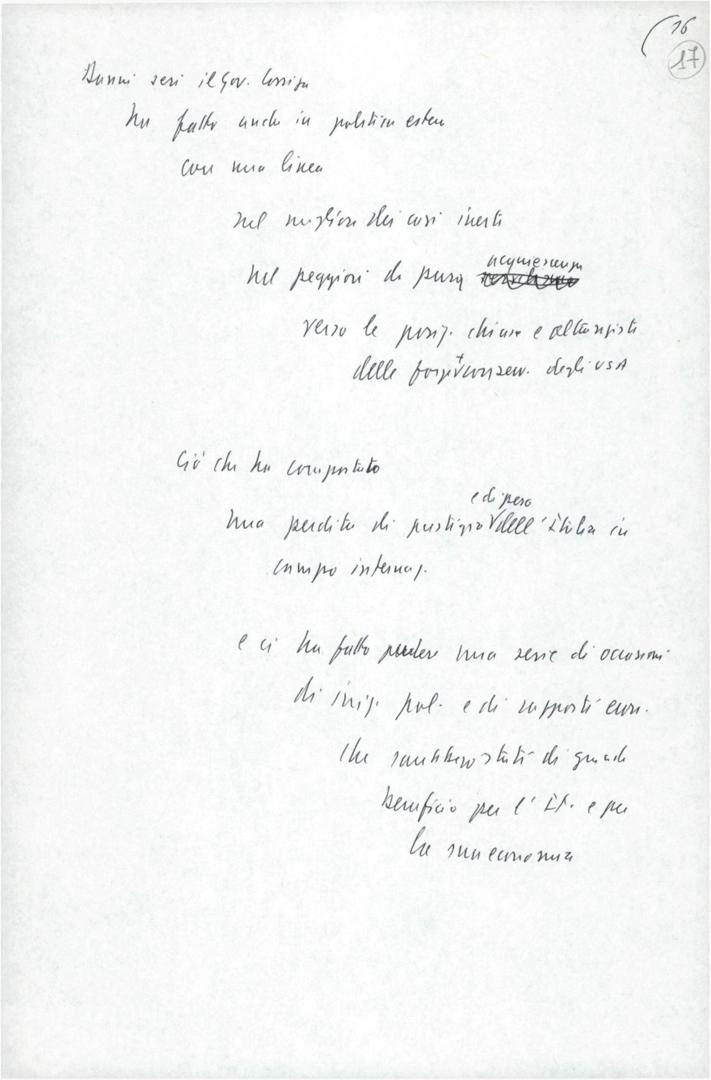 16
17
Danni seri il Gov. Cossiga
ha fatto anche in politica estera
con una linea
nel migliore dei casi inerte
nel peggiore di pura acquiescenza
verso le posiz. chiuse e oltranziste
delle forze + conserv. degli USA
Ciò che ha comportato
una perdita di prestigio e di peso dell'Italia in
campo internaz.
e ci ha fatto perdere una serie di occasioni
di iniz. pol. e di rapporti econ.
che sarebbero stati di grande
beneficio per l'It. e per
la sua economia